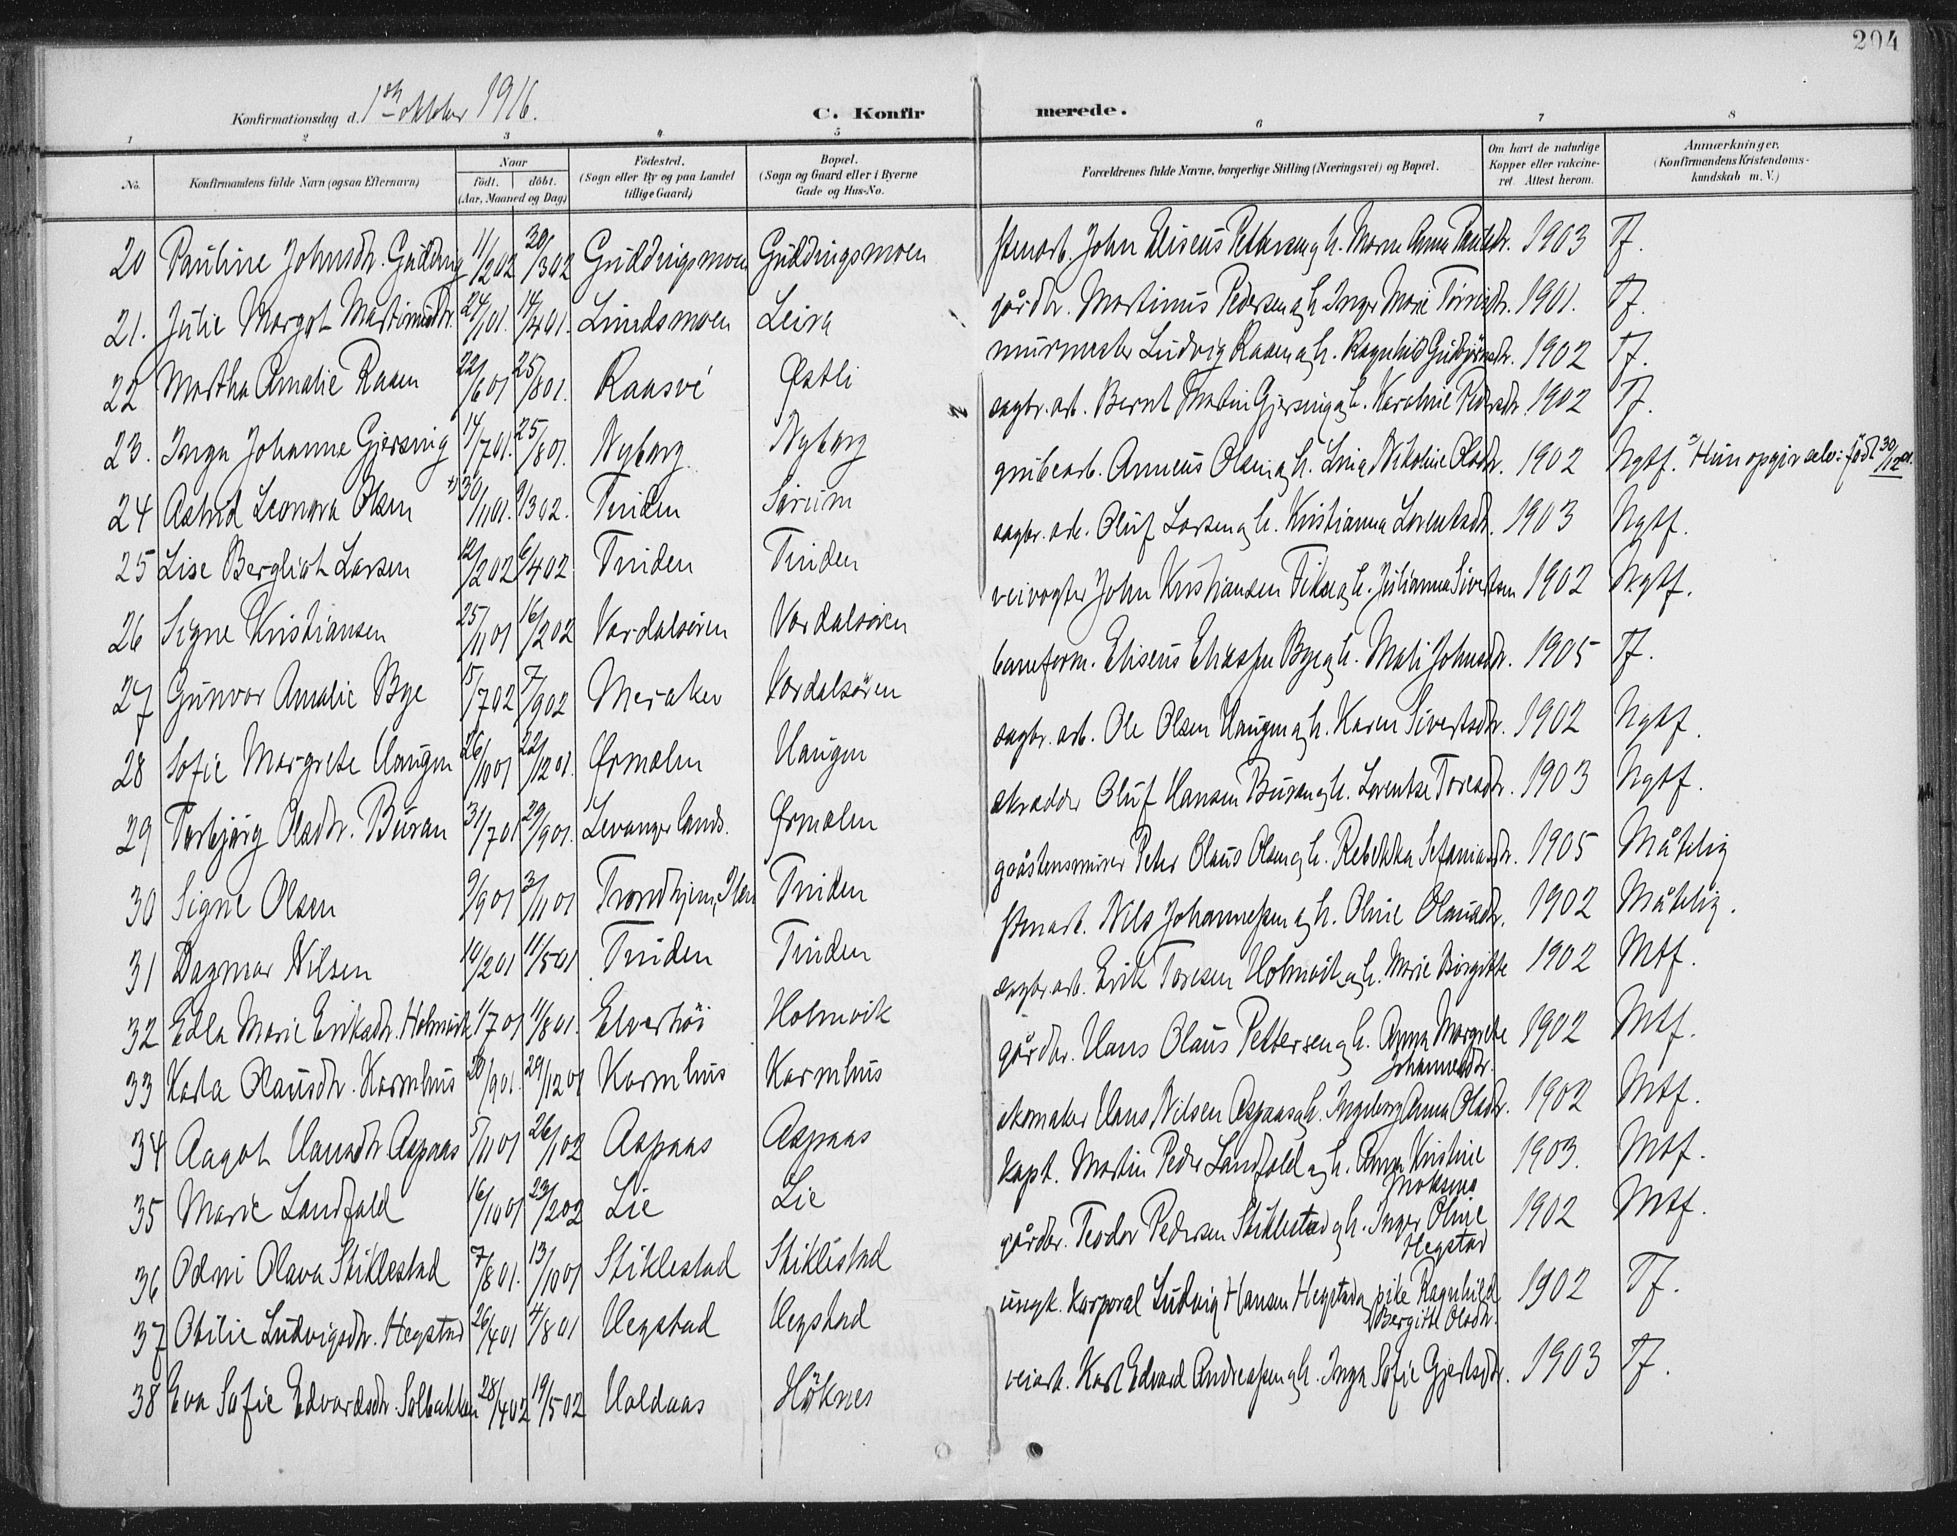 204
Konfirmationsdag d. 1ste oktober 1916.
C. Konfirmerede.
1 2 3 4 5 6 7 8
No. Konfirmandens fulde Navn (ogsaa Efternavn) Naar født. døbt. (Aar, Maaned og Dag) Fødested. (Sogn eller By og paa Landet tillige Gaard) Bopæl. (Sogn og Gaard eller i Byerne Gade og Hus-No. Forældrenes fulde Navne, borgerlige Stilling (Næringsvei) og Bopæl. Om havt de naturlige Kopper eller vakcineret. Attest herom. Anmærkninger. (Konfirmandens Kristendomskundskab m. V.)
20 Pauline Johnsdtr. Gudding 11/2 02 30/3 02 Guddingsmoen Guddingsmoen John Eliseus Pettersen og h. Maren Anna Paulsdtr. 1903 Tf.
21. Julie Margot Martinusdtr. 24/1 01. 14/4 01. Lundsmoen Leira gårdbr. Martinus Pedersen og h. Inger Marie 1901. Tf.
22 Martha Amalie Raaen 22/6 01 25/8 01. Raasve Østli murmester Ludvig Raaen og h. Ragnhild 1902 Tf.
23. Inga Johanna Gjersing 14/7 01. 25/8 01. Nyborg Nyborg sagbr. arb. Bernt Martin Gjersing og h. Karoline Pedersdtr. 1902 Tf.
24 Astrid Leonora Olsen 30/11 01. 9/3 02. Tinden Sørum grubearb. Anneus Olsen og h. Lina Nikoline Olsdtr. 1902 Ngtf. Hun opgir selv: født 30/12 01.
25 Lise Bergliot Larsen 12/2 02 6/4 02 Tinden Tinden sagbr. arb. Oluf Larsen og h. Kristianna Lorentsdtr. 1903 Ngtf.
26 Signe Kristiansen 25/11 01 16/2 02 Værdalsøren Værdalsøren veivogter John Kristiansen og h. Julianna Sivertsen 1902 Ngtf.
27 Gunvor Amalie Bye 15/7 02 7/9 02 Meraker Værdalsøren baneform. Eliseus Ellessen Bye og h. Mali Johnsdtr. 1905 Tf.
28 Sofie Margrete Haugen 26/10 01 22/12 01. Ørmelen Haugen sagbr. arb. Ole Olsen Haugen og h. Karen Sivertsdtr. 1902 Ngtf.
29 Torbjørg Olsdtr. Buran 31/7 01 29/9 01. Levanger lands. Ørmelen skrædder Oluf Hansen Buran og h. Lorentse Toresdtr. 1903 Ngtf.
30 Signe Olsen 9/9 01 3/11 01 Trondhjem, Ilen Tinden gråstensmurer Peter Olaus Olsen og h. Rebekka Sefaniasdtr. 1905 Måtelig
31 Dagmar Nilsen 10/2 01 11/5 01 Tinden Tinden Nils Johannessen og h. Oline Olausdtr. 1902 Måtelig.
32 Edla Marie Eriksdtr. Holmvik 1/7 01 11/8 01. Elverhøi Holmvik sagbr. arb. Erik Toresen Holmvik og h. Marie Birgitte 1902 Mtf.
33 Karla Olausdtr. Karmhus 20/9 01. 29/12 01 Karmhus Karmhus gårdbr. Hans Olaus Pettersen og h. Anna Margrete Johannesdtr. 1902 Mtf.
34 Aagot Hansdtr Aspaas 5/11 01 26/1 02 Aspaas Aspaas skomaker Hans Nilsen Aspaas og h. Ingeborg Anna Olsdtr. 1902 Mtf.
35 Marie Landfald 16/10 01 23/2 02 Lie Lie kapt. Martin Peder Landfald og h. Anna Kristine Moksnes 1903. Mtf.
36 Odni Olava Stiklestad 7/8 01. 13/10 01 Stiklestad Stiklestad gårdbr. Teodor Pedersen Stiklestad og h. Inger Oline Hegstad 1902 Mtf.
37 Otilie Ludvigsdtr. Hegstad 26/4 01 4/8 01 Hegstad Hegstad ungk. korporal Ludvig Hansen Hegstad og pike Ragnhild Bergitte Olsdtr. 1902 Tf.
38 Eva Sofie Edvardsdtr. Solbakken 28/4 02 19/5 02 Haldaas Høknes veiarb. Karl Edvard Andreassen og h. Inga Sofie Gjertsdtr. 1903 Tf.